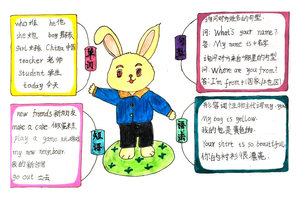 who 谁 he 他
she 她 boy 男孩
girl 女孩 China 中国
teacher 老师
student 学生
today 今天
单词
询问对方姓名的句型
问: What's your name?
答: My name is + 名字
询问对方来自哪里的句型
问: Where are you from?
答: I'm from + (国家/地区)
new friends 新朋友
make a cake 做蛋糕
play a game
my new neighbour
我的新邻居
go out 出去
短语
语法
形容词性物主代词 my your
My bag is yellow.
我的包是黄色的
Your shirt is so beautiful.
你的衬衫很漂亮.